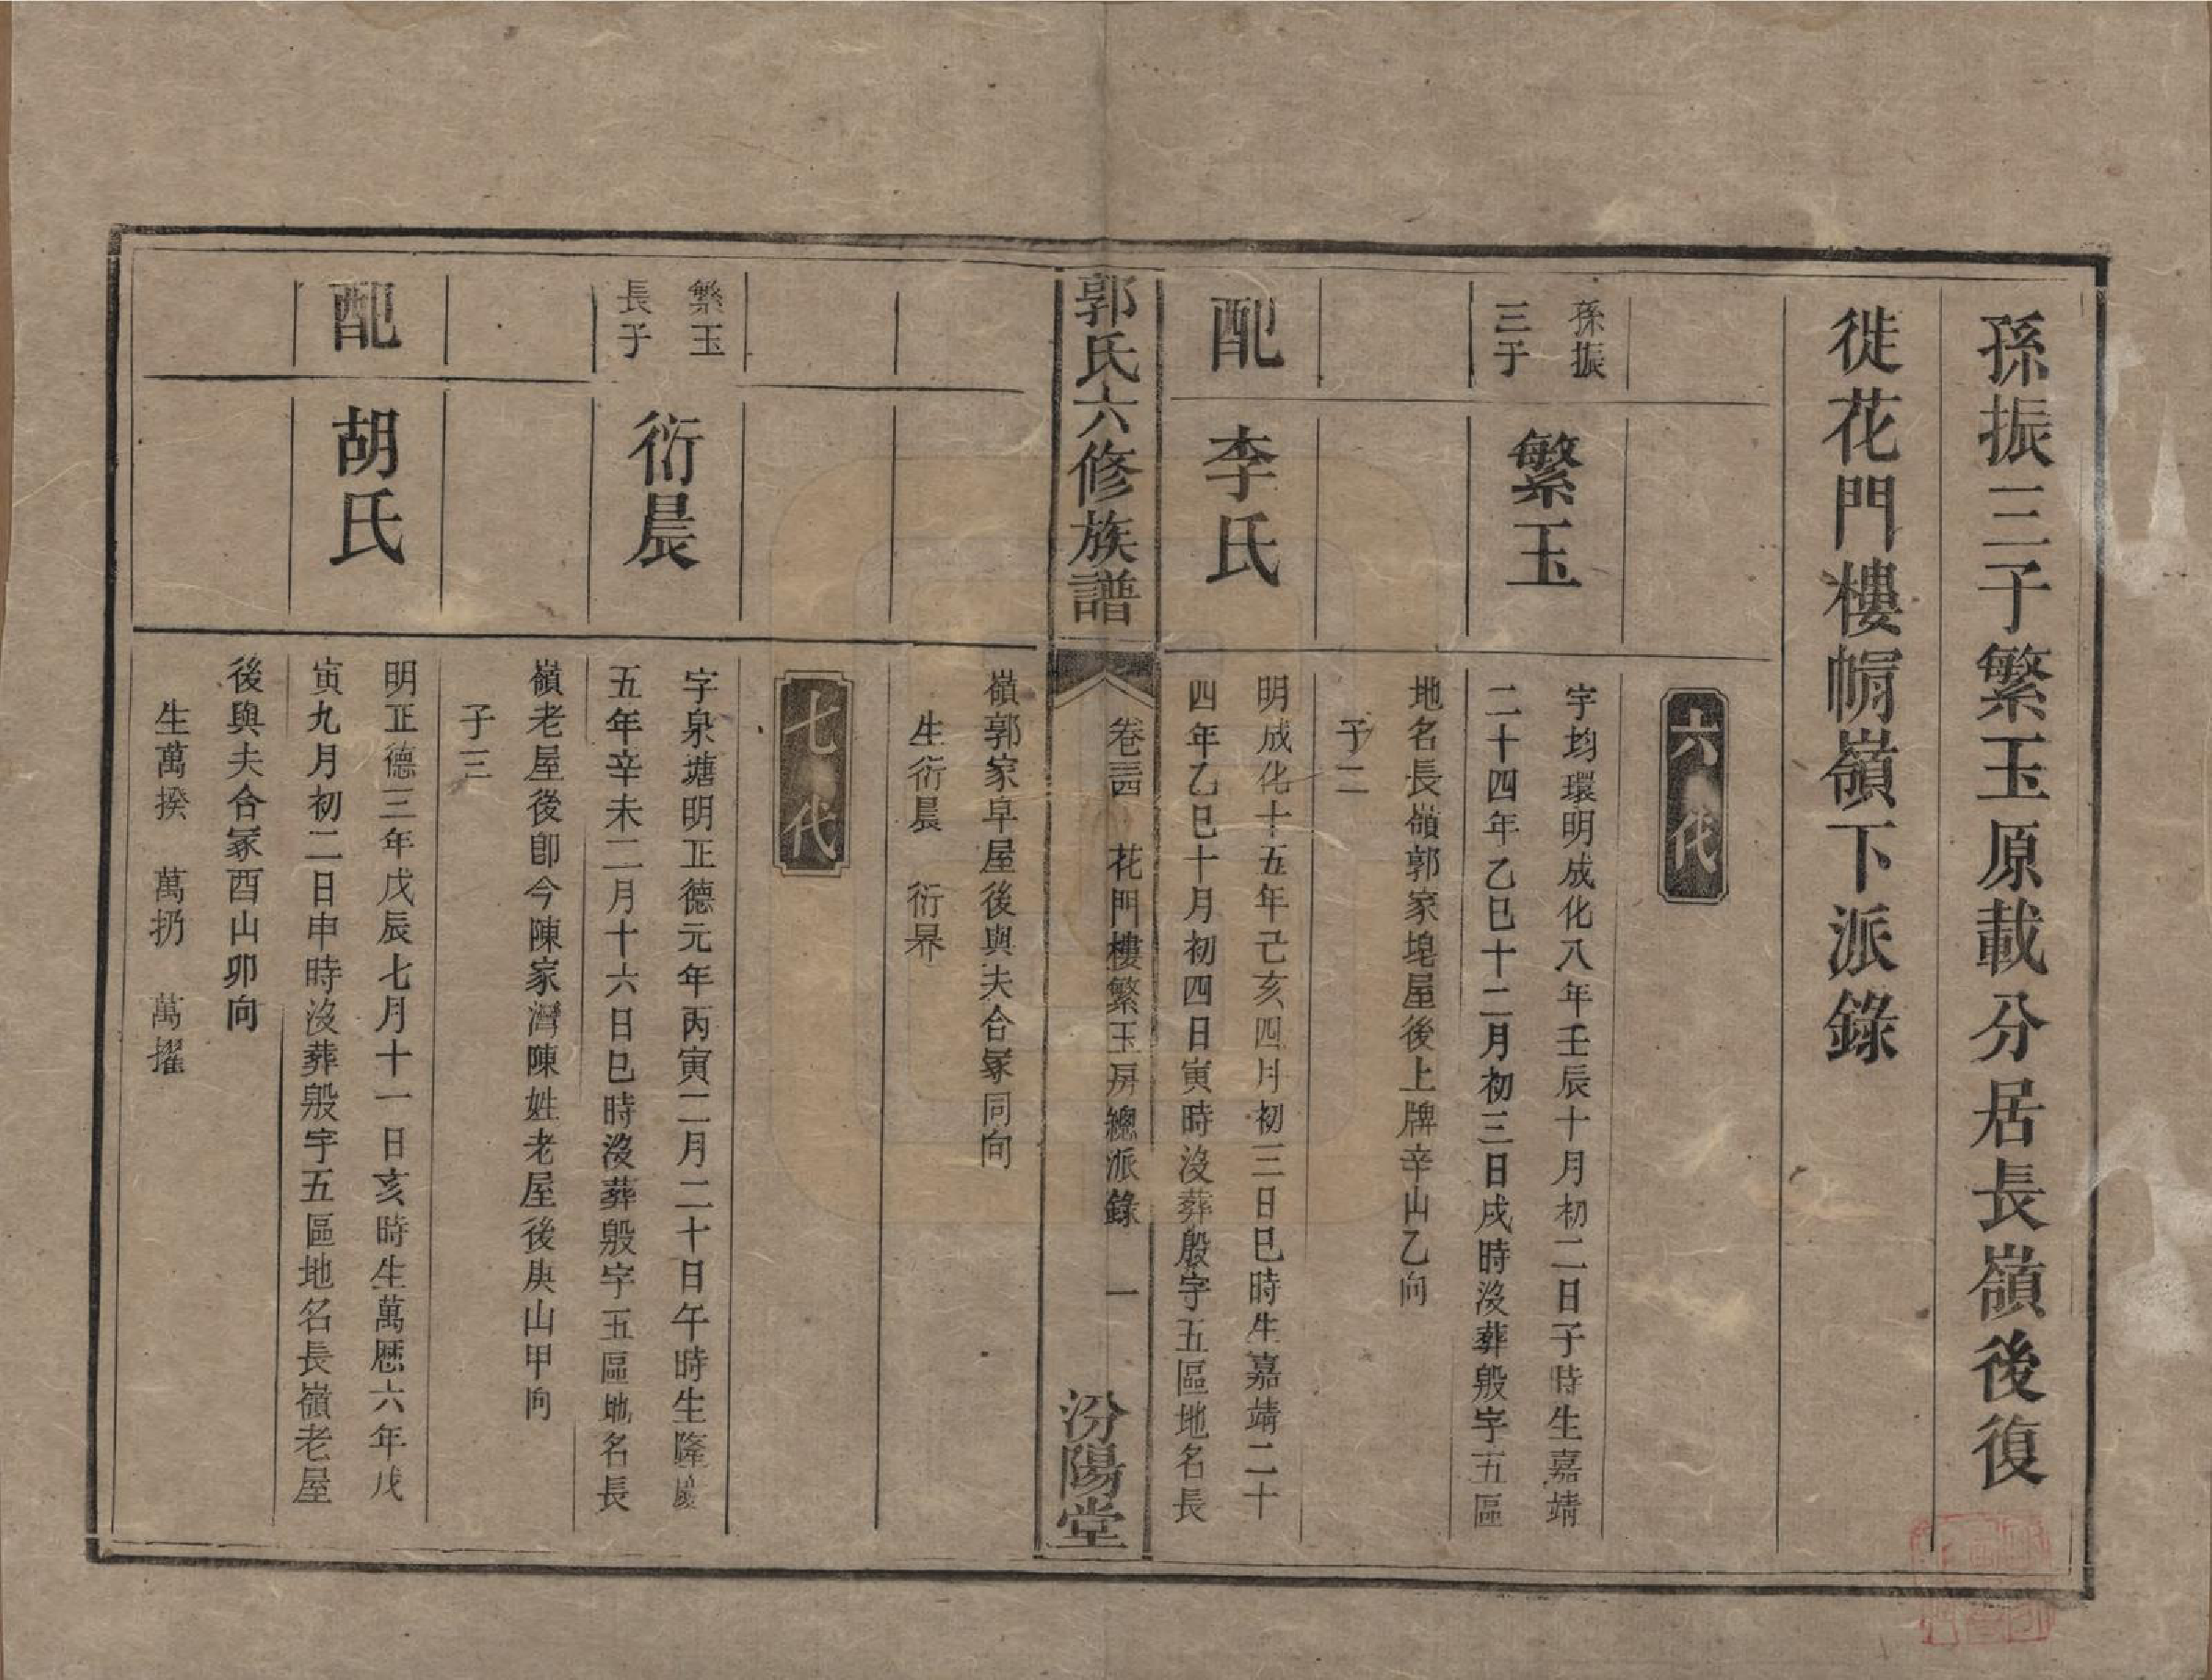 孫振三子繁玉原載分居長嶺後復
徙花門樓帽嶺下派錄
六代
孫振
三子
繁玉
字均環明成化八年壬辰十月初二日子時生嘉靖
二十四年乙巳十二月初三日戌時沒葬殷字五區
地名長嶺郭家埠屋後上牌辛山乙向
子二
配
李氏
明成化十五年己亥四月初三日巳時生嘉靖二十
四年乙巳十月初四日寅時沒葬殷字五區地名長
郭氏六修族譜
卷三四
花門樓繁玉房總派錄
一
汾陽堂
嶺郭家阜屋後與夫合冢同向
生衍晨 衍晜
七代
繁玉
長子
衍晨
字泉塘明正德元年丙寅二月二十日午時生隆慶
五年辛未二月十六日巳時沒葬殷字五區地名長
嶺老屋後卽今陳家灣陳姓老屋後庚山甲向
子三
配
胡氏
明正德三年戊辰七月十一日亥時生萬厯六年戊
寅九月初二日申時沒葬殷字五區地名長嶺老屋
後與夫合冢酉山卯向
生萬揆 萬扔 萬擢